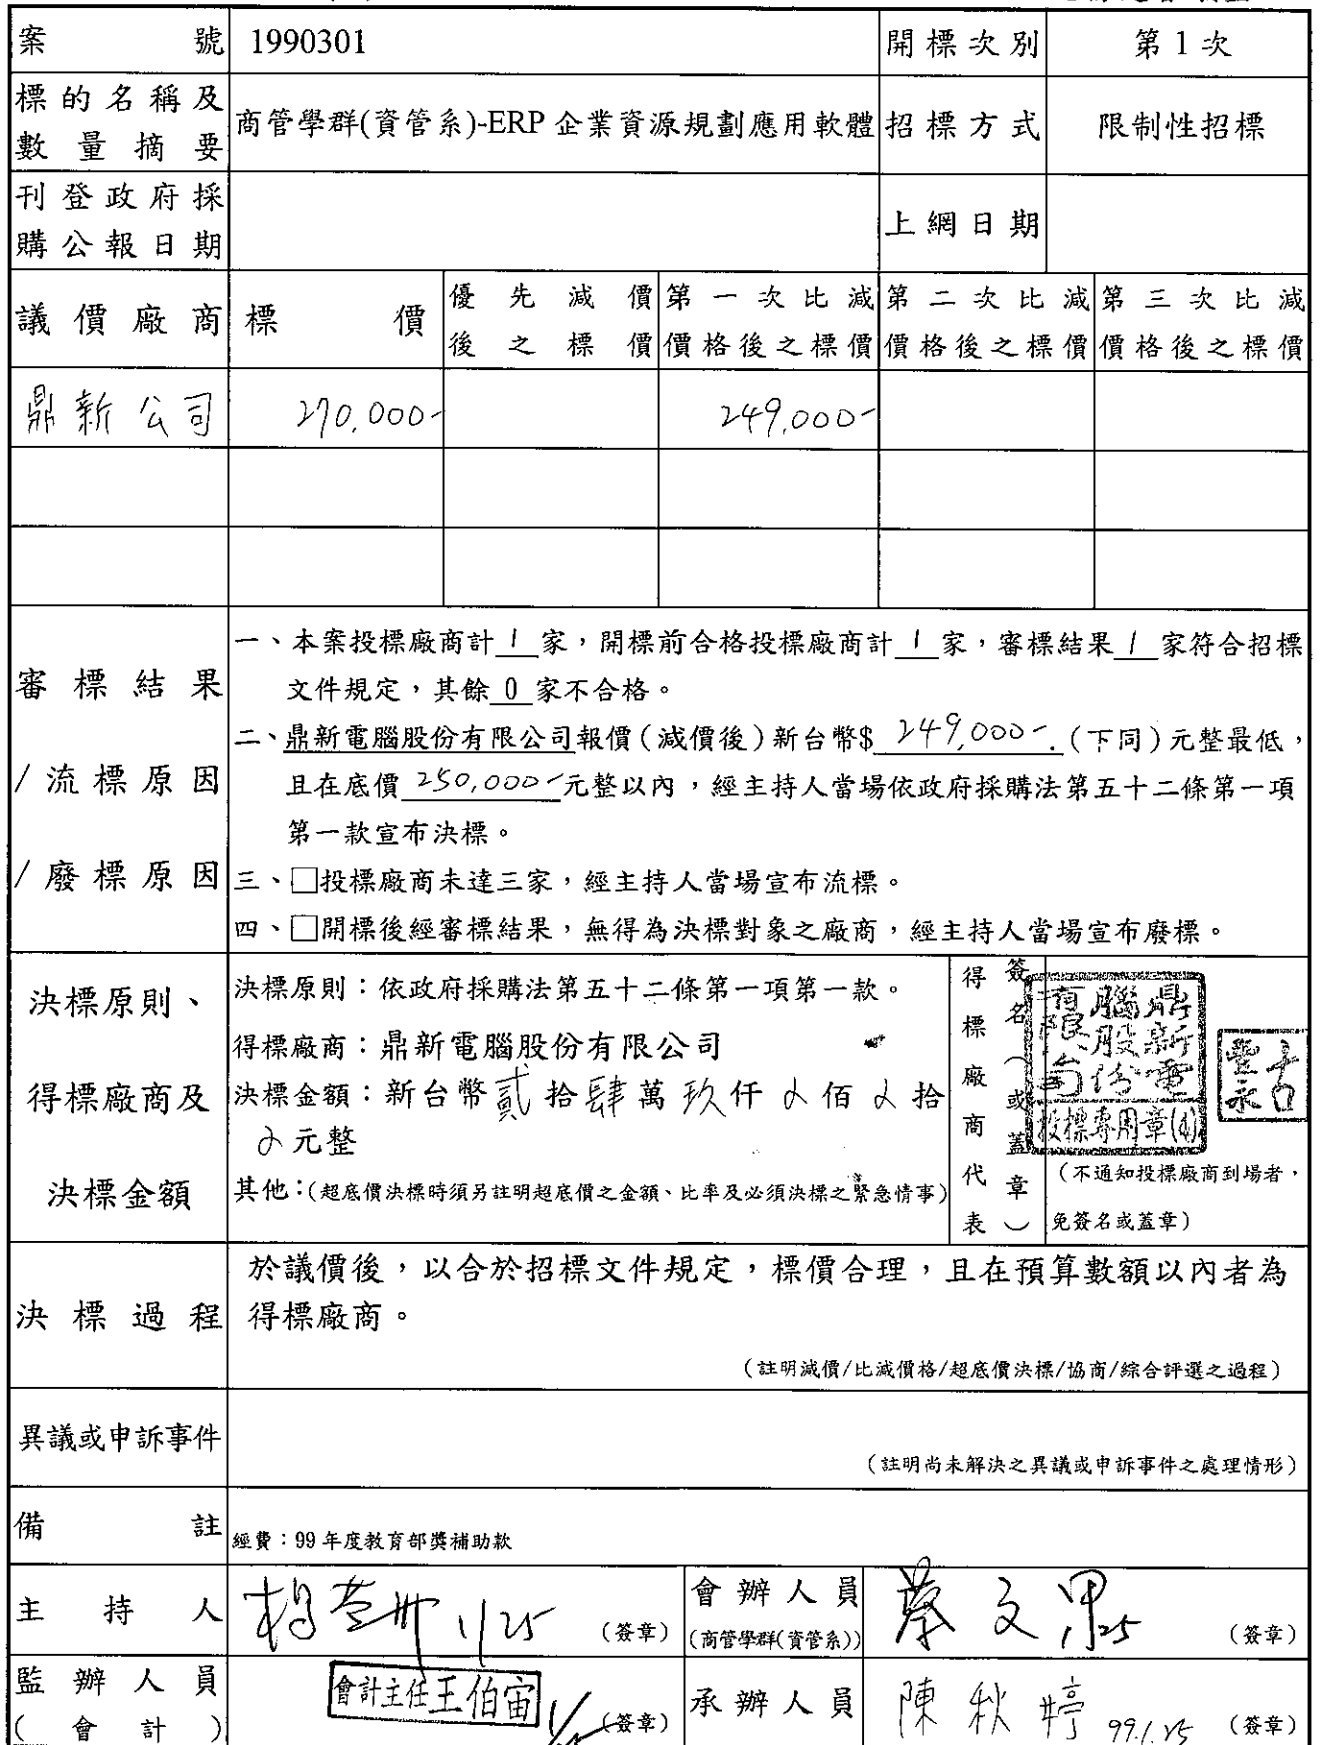 案號 1990301 開標次別 第1次
標的名稱及
數量摘要
商管學群(資管系)-ERP 企業資源規劃應用軟體 招標方式 限制性招標
刊登政府採
購公報日期
上網日期
議價廠商 標價
優先減價
後之標價
第一次比減
價格後之標價
第二次比減
價格後之標價
第三次比減
價格後之標價
鼎新公司 270,000- 249,000-
審標結果
/流標原因
/廢標原因
一、本案投標廠商計 1 家，開標前合格投標廠商計 1 家，審標結果 1 家符合招標
文件規定，其餘 0 家不合格。
二、鼎新電腦股份有限公司報價(減價後)新台幣$ 249,000-.(下同)元整最低，
且在底價 250,000-元整以內，經主持人當場依政府採購法第五十二條第一項
第一款宣布決標。
三、□投標廠商未達三家，經主持人當場宣布流標。
四、□開標後經審標結果，無得為決標對象之廠商，經主持人當場宣布廢標。
決標原則、
得標廠商及
決標金額
決標原則：依政府採購法第五十二條第一項第一款。
得標廠商：鼎新電腦股份有限公司
決標金額：新台幣貳拾肆萬玖仟0佰0拾
0元整
其他：(超底價決標時須另註明超底價之金額、比率及必須決標之緊急情事)
得標廠商代表
簽名(或蓋章)
鼎新電
腦股份
有限公司
投標專用章(4)
古
豐永
(不通知投標廠商到場者，
免簽名或蓋章)
決標過程
於議價後，以合於招標文件規定，標價合理，且在預算數額以內者為
得標廠商。
(註明減價/比減價格/超底價決標/協商/綜合評選之過程)
異議或申訴事件
(註明尚未解決之異議或申訴事件之處理情形)
備註 經費：99年度教育部獎補助款
主持人 1/25 (簽章)
會辦人員
(商管學群(資管系))
蔡文 25 (簽章)
監辦人員
(會計)
會計主任王伯宙 (簽章)
承辦人員 陳秋婷 99.1.25 (簽章)